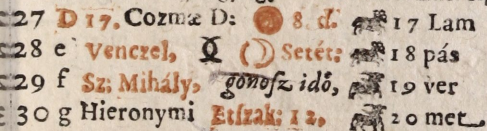 27 D 17. Cozmæ D: 8. d. 17 Lam
28 e Venczel, ( ) Setét: 18 pás
29 f Sz: Mihály, gonosz idő, 19 ver
30 g Hieronymi Etszak: 12, 20 met